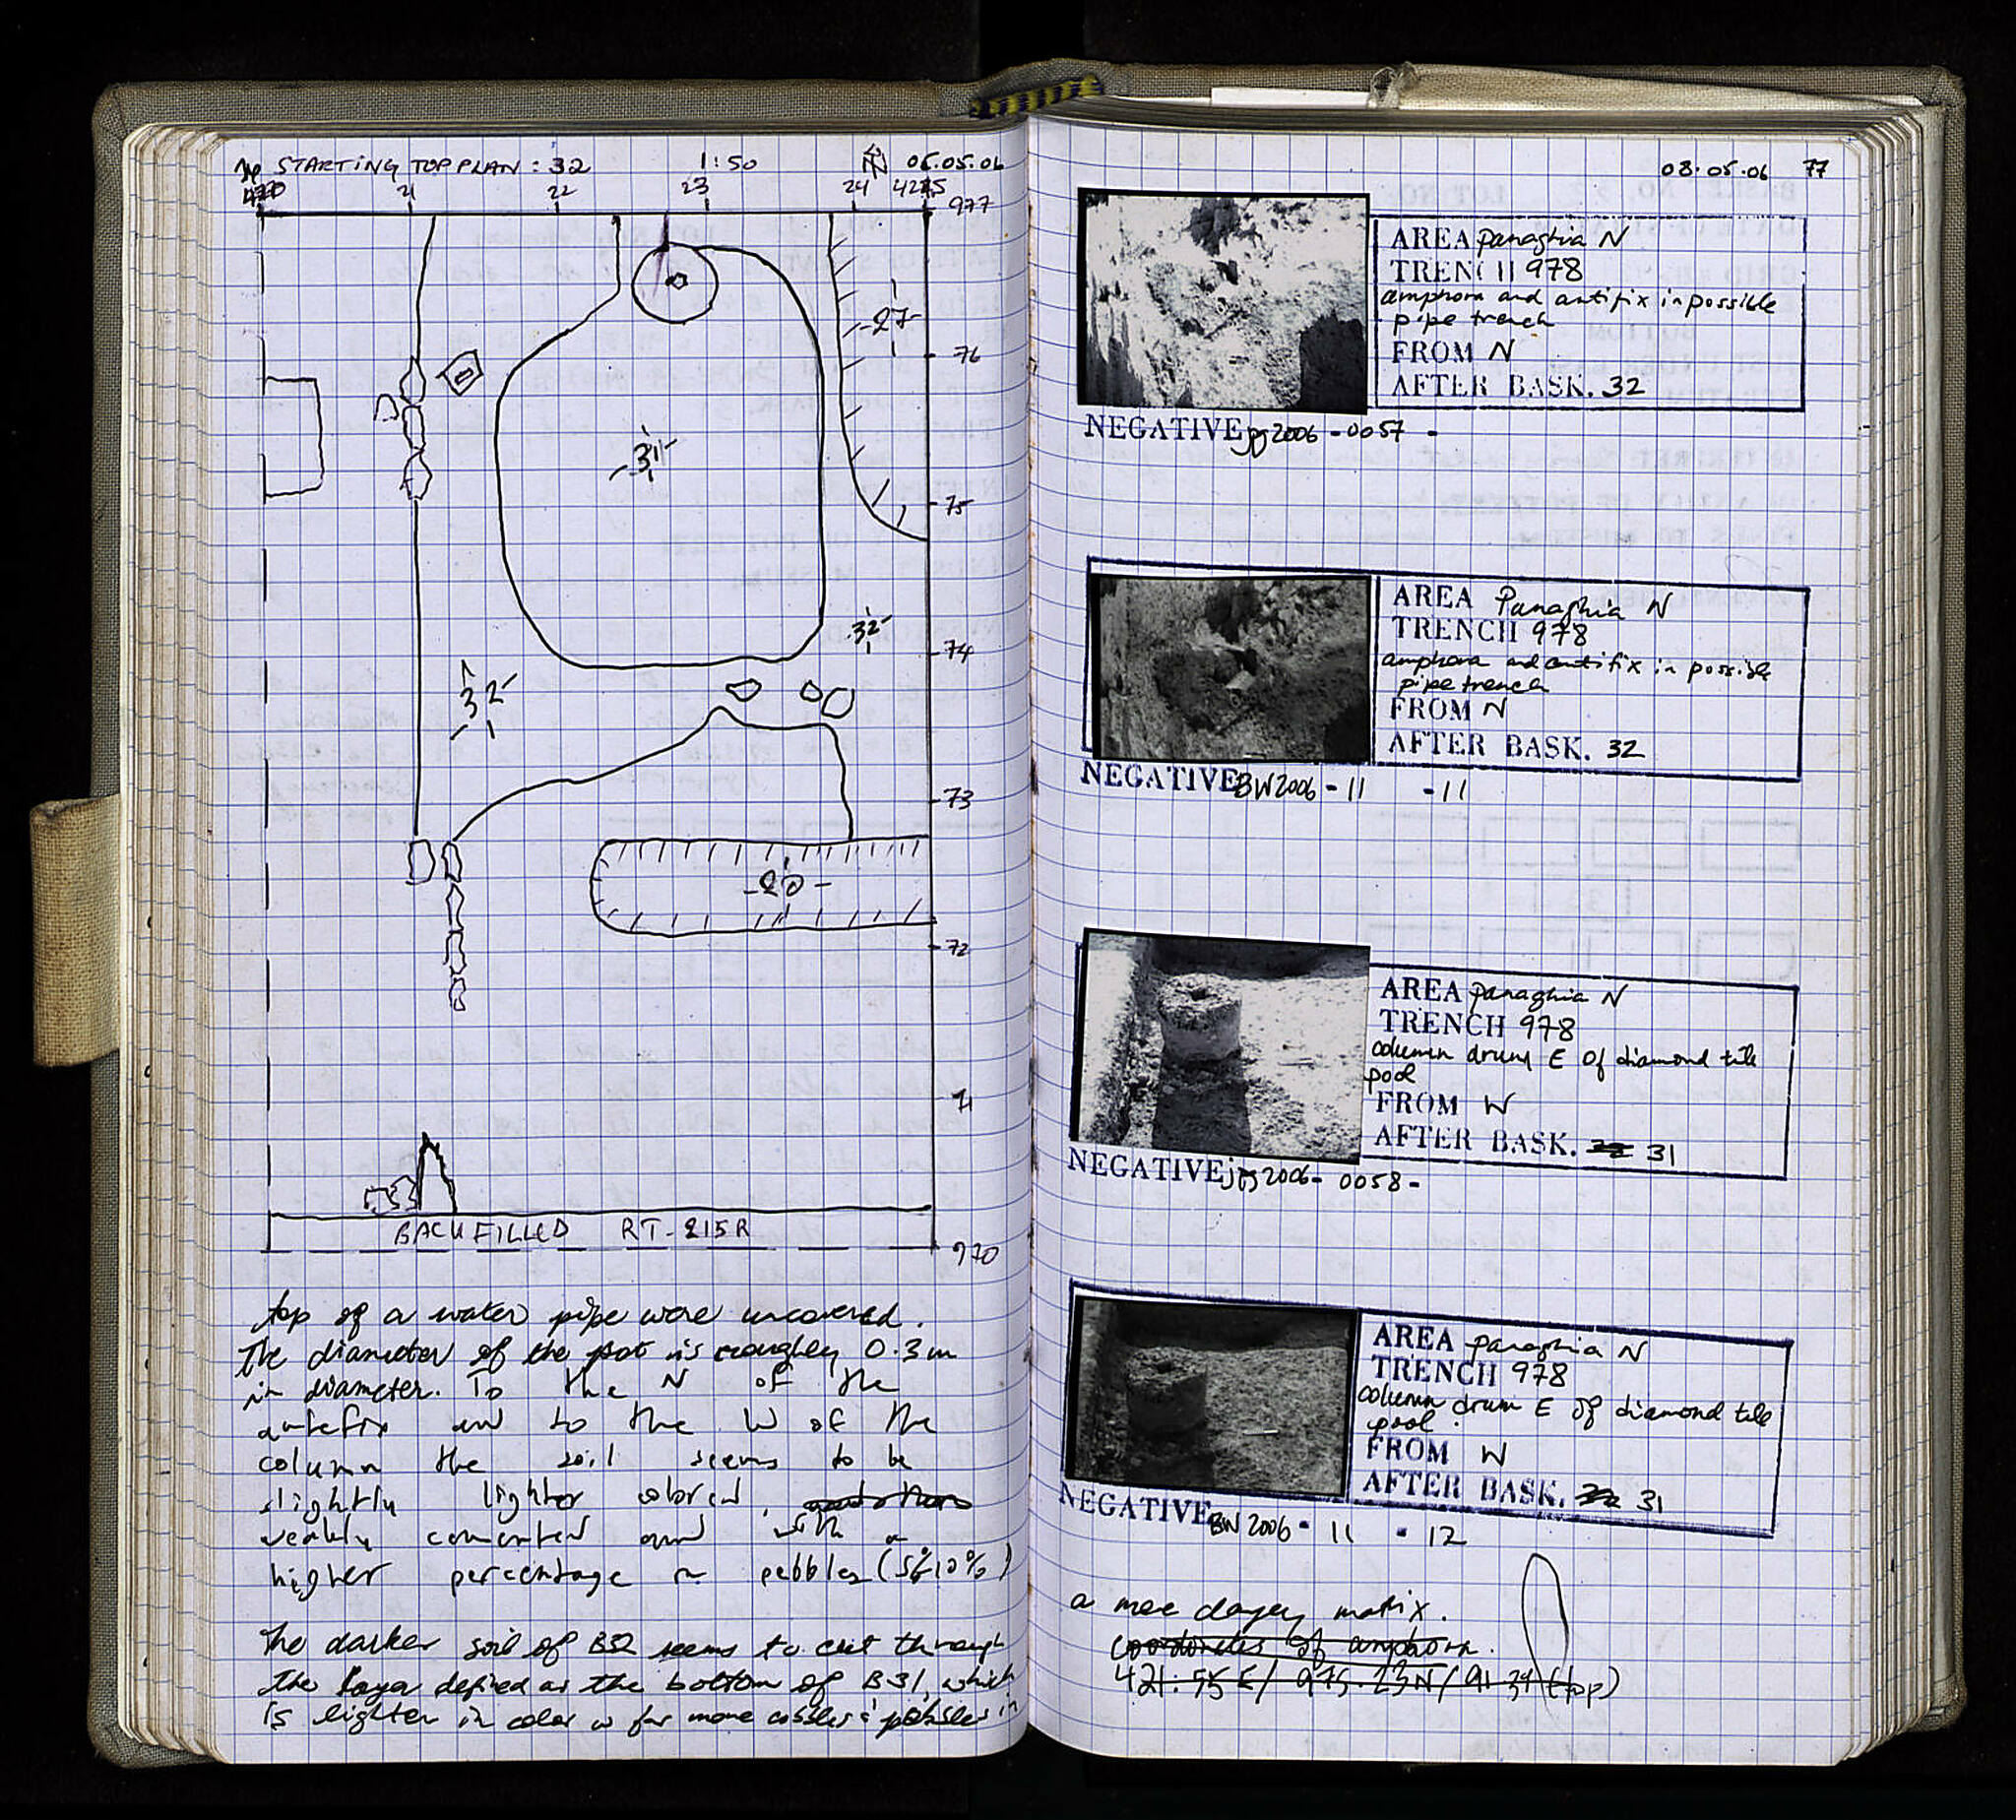 STARTING TOP PLAN : 32 1:50 N 06.05.06
21 22 23 24
977
-27-
76
-31-
75
32-
74
-32-
73
-20-
72
71
BACKFILLED RT-215R
970
top of a water pipe were uncovered.
The diameter of the pot is roughly 0.3m
in diameter. To the N of the
antefix and to the W of the
column the soil seems to be
slightly lighter colored,
weakly cemented and with a
higher percentage in pebbles (5%10%)
The darker soil of B32 seems to cut through
the layer defined as the bottom of B31, which
is lighter in color w far more cobbles & pebbles in
08.05.06 77
AREA Panaghia N
TRENCH 978
amphora and antifix in possible
pipe trench
FROM N
AFTER BASK. 32
NEGATIVE jpg2006-0057-
AREA Panaghia N
TRENCH 978
amphora and antifix in possible
pipe trench
FROM N
AFTER BASK. 32
NEGATIVE BW2006-11 -11
AREA Panaghia N
TRENCH 978
column drum E of diamond tile
pool
FROM W
AFTER BASK. 31
NEGATIVE jpg2006-0058-
AREA Panaghia N
TRENCH 978
column drum E of diamond tile
pool.
FROM W
AFTER BASK. 31
NEGATIVE BW2006-11 -12
a more clayey matrix.
coordinates of amphora.
421.55E/ 975.23N/ 91.34 (top)